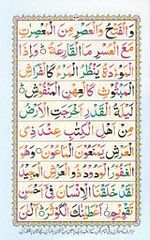 وَالْفَتْحُ وَالْعَصْرِ مِنَ الْمُعْصِرٰتِ
مَعَ الْعُسْرِ مَا الْقَارِعَةُ وَاِذَا
الْمَوْءٗدَةُ يَنْظُرُ الْمَرْءُ كَالْفَرَاشِ
الْمَبْثُوْثِ كَالْعِهْنِ الْمَنْفُوْشِ
لَيْلَةُ الْقَدْرِ اَخْرَجَتِ الْاَرْضُ
مِنْ اَهْلِ الْكِتٰبِ عِنْدَ ذِي
الْعَرْشِ يَمْنَعُوْنَ الْمَاعُوْنَ وَهُوَ
الْغَفُوْرُ الْوَدُوْدُ ذُو الْعَرْشِ الْمَجِيْدُ
لَقَدْ خَلَقْنَا الْاِنْسَانَ فِيْ اَحْسَنِ
تَقْوِيْمٍ اَعْطَيْنٰكَ الْكَوْثَرَ